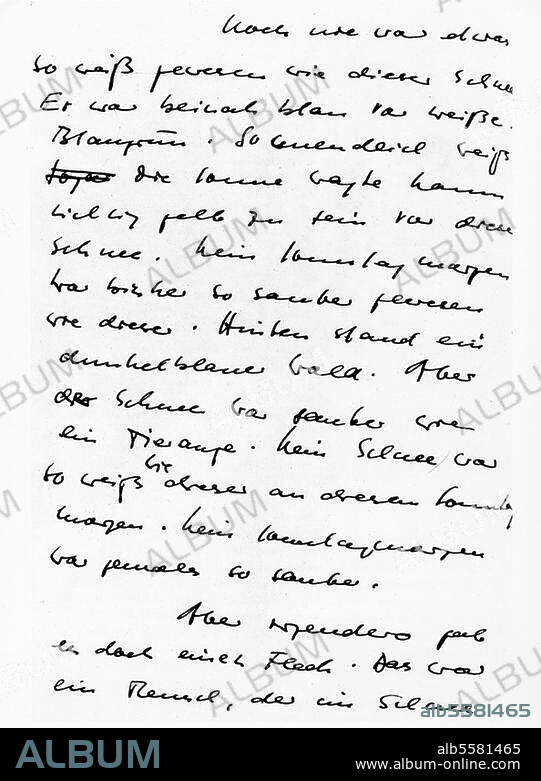 Noch nie war etwas
so weiß gewesen wie dieser Schnee
Er war beinah blau vor weiße.
Blaugrün. So unendlich weiß
Die Sonne wagte kaum
richtig gelb zu sein vor diesem
Schnee. Kein Sonntagmorgen
war bisher so sauber gewesen
wie dieser. Hinten stand ein
dunkelblauer Wald. Aber
der Schnee war sauber wie
ein Tierauge. Kein Schnee war
so weiß wie dieser an diesem Sonntag
morgen. Kein Sonntagmorgen
war jemals so sauber.
Aber irgendwo gab
es doch einen Fleck. Das war
ein Mensch, der im Schnee
alb5581465
ALBUM
alb5581465
www.album-online.com